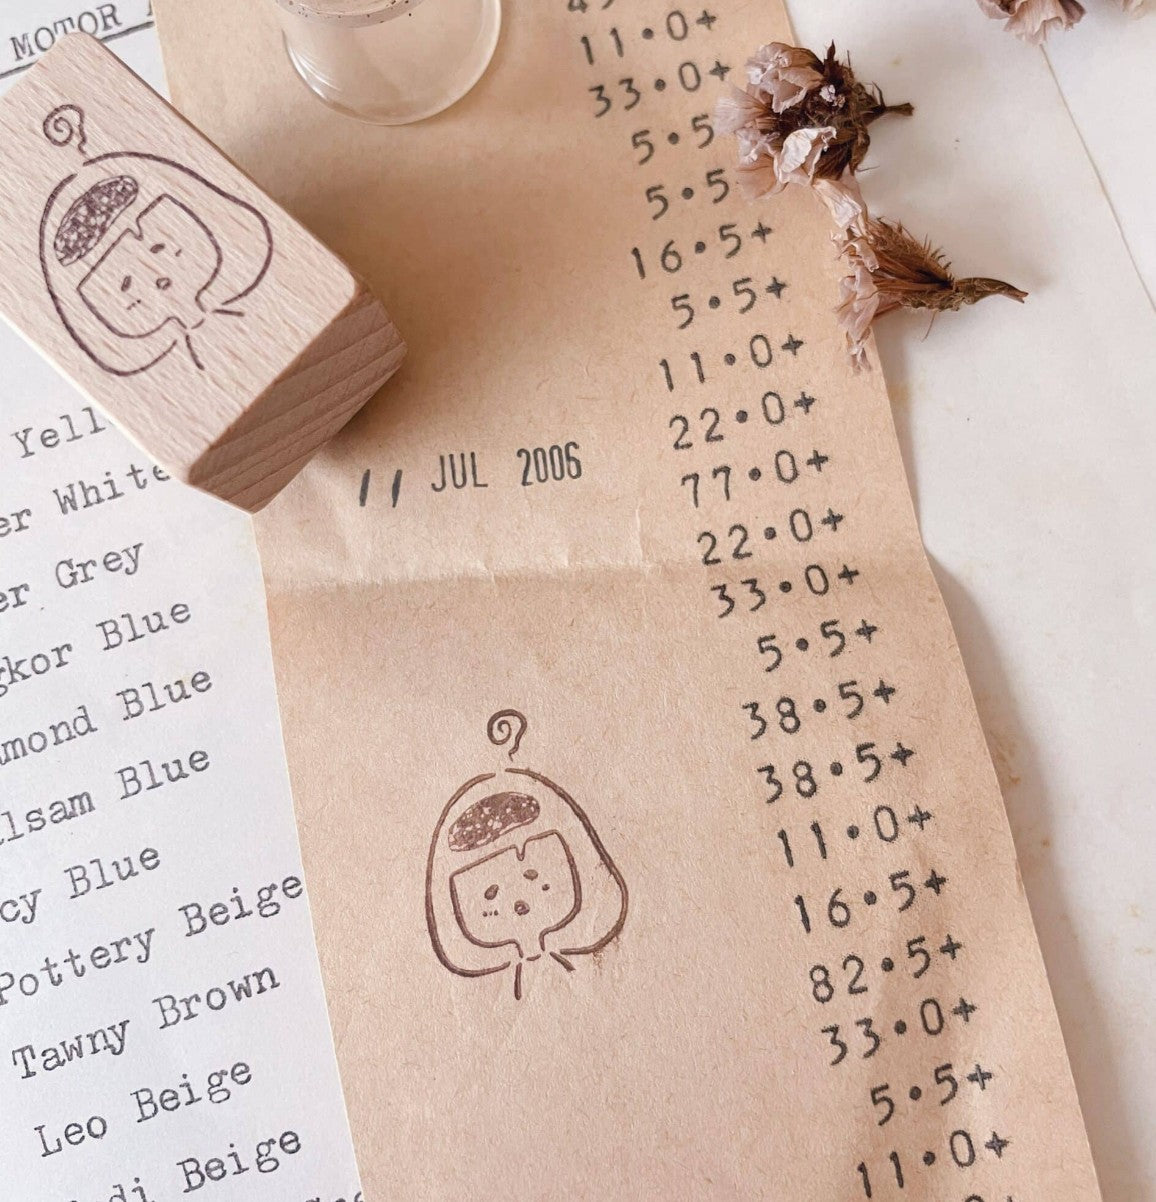 MOTOR
11·0+
33·0+
5·5
5·5
16·5+
5·5+
11·0+
22·0+
77·0+
22·0+
33·0+
5·5+
38·5+
38·5+
11·0+
16·5+
82·5+
33·0+
5·5+
11·0+
11 JUL 2006
Yell
er White
er Grey
gkor Blue
mond Blue
lsam Blue
cy Blue
Pottery Beige
Tawny Brown
Leo Beige
di Beige